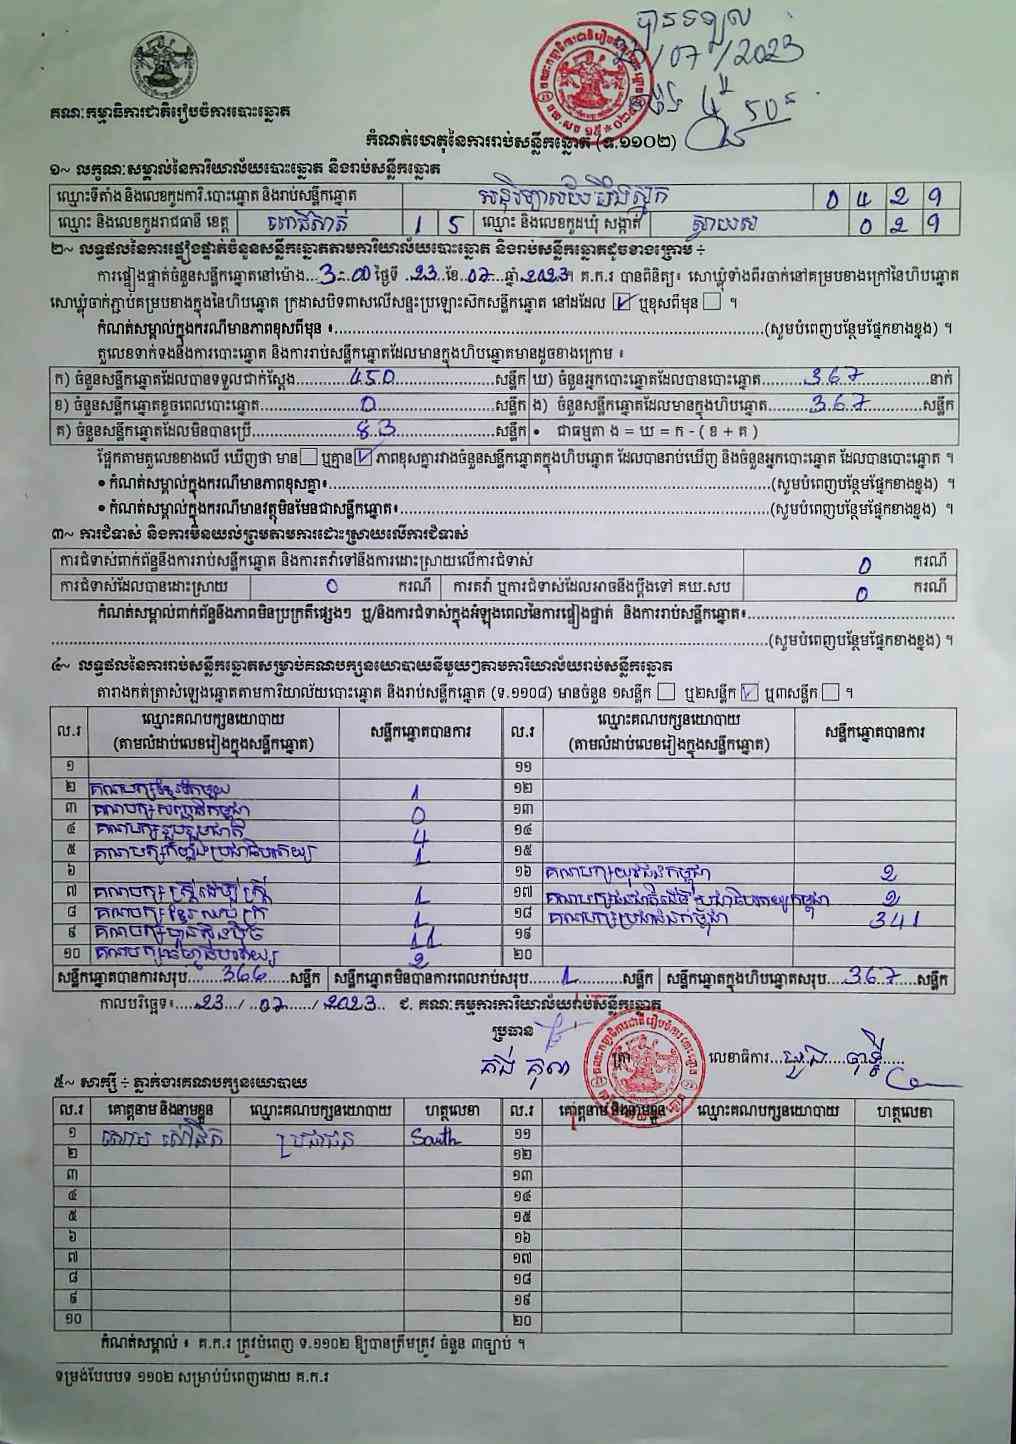 បានទទួល
/07/2023
4 50
គណៈកម្មាធិការជាតិរៀបចំការបោះឆ្នោត
កំណត់ហេតុនៃការរាប់សន្លឹកឆ្នោត (ទ.១១០២)
១~ លក្ខណៈសម្គាល់នៃការិយាល័យបោះឆ្នោត និងរាប់សន្លឹកឆ្នោត
ឈ្មោះទីតាំង និងលេខកូដការិ.បោះឆ្នោត និងរាប់សន្លឹកឆ្នោត 0429
ឈ្មោះ និងលេខកូដរាជធានី ខេត្ត ពោធិ៍សាត់ 15 ឈ្មោះ និងលេខកូដឃុំ សង្កាត់ 029
២~ លទ្ធផលនៃការផ្ទៀងផ្ទាត់ចំនួនសន្លឹកឆ្នោតតាមការិយាល័យបោះឆ្នោត និងរាប់សន្លឹកឆ្នោតដូចខាងក្រោម ÷
ការផ្ទៀងផ្ទាត់ចំនួនសន្លឹកឆ្នោតនៅម៉ោង...3:00 ថ្ងៃទី 23 ខែ 07 ឆ្នាំ 2023។ គ.ក.រ បានពិនិត្យ៖ សោឃ្លុំទាំងពីរចាក់នៅគម្របខាងក្រៅនៃហិបឆ្នោត
សោឃ្លុំចាក់ភ្ជាប់គម្របខាងក្នុងនៃហិបឆ្នោត ក្រដាសបិទពាសលើសន្ទះប្រឡោះស៊កសន្លឹកឆ្នោត នៅដដែល ☑ ឬខុសពីមុន ☐ ។
កំណត់សម្គាល់ក្នុងករណីមានភាពខុសពីមុន ៖..........(សូមបំពេញបន្ថែមផ្នែកខាងខ្នង) ។
តួលេខទាក់ទងនឹងការបោះឆ្នោត និងការរាប់សន្លឹកឆ្នោតដែលមានក្នុងហិបឆ្នោតមានដូចខាងក្រោម ៖
ក) ចំនួនសន្លឹកឆ្នោតដែលបានទទួលជាក់ស្តែង..........450..........សន្លឹក ឃ) ចំនួនអ្នកបោះឆ្នោតដែលបានបោះឆ្នោត..........367..........នាក់
ខ) ចំនួនសន្លឹកឆ្នោតខូចពេលបោះឆ្នោត..........0..........សន្លឹក ង) ចំនួនសន្លឹកឆ្នោតដែលមានក្នុងហិបឆ្នោត..........367..........សន្លឹក
គ) ចំនួនសន្លឹកឆ្នោតដែលមិនបានប្រើ..........83..........សន្លឹក • ជាធម្មតា ង = ឃ = ក - ( ខ + គ )
ផ្អែកតាមតួលេខខាងលើ ឃើញថា មាន ☐ ឬគ្មាន ☑ ភាពខុសគ្នារវាងចំនួនសន្លឹកឆ្នោតក្នុងហិបឆ្នោត ដែលបានរាប់ឃើញ និងចំនួនអ្នកបោះឆ្នោត ដែលបានបោះឆ្នោត ។
• កំណត់សម្គាល់ក្នុងករណីមានភាពខុសគ្នា៖..........(សូមបំពេញបន្ថែមផ្នែកខាងខ្នង) ។
• កំណត់សម្គាល់ក្នុងករណីមានវត្ថុមិនមែនជាសន្លឹកឆ្នោត៖..........(សូមបំពេញបន្ថែមផ្នែកខាងខ្នង) ។
៣~ ការជំទាស់ និងការមិនយល់ព្រមតាមការដោះស្រាយលើការជំទាស់
ការជំទាស់ពាក់ព័ន្ធនឹងការរាប់សន្លឹកឆ្នោត និងការតវ៉ាទៅនឹងការដោះស្រាយលើការជំទាស់ 0 ករណី
ការជំទាស់ដែលបានដោះស្រាយ 0 ករណី ការតវ៉ា ឬការជំទាស់ដែលអាចនឹងប្តឹងទៅ គឃ.សប 0 ករណី
កំណត់សម្គាល់ពាក់ព័ន្ធនឹងភាពមិនប្រក្រតីផ្សេងៗ ឬ/និងការជំទាស់ក្នុងអំឡុងពេលនៃការផ្ទៀងផ្ទាត់ និងការរាប់សន្លឹកឆ្នោត៖..........
..........(សូមបំពេញបន្ថែមផ្នែកខាងខ្នង) ។
៤~ លទ្ធផលនៃការរាប់សន្លឹកឆ្នោតសម្រាប់គណបក្សនយោបាយនីមួយៗតាមការិយាល័យរាប់សន្លឹកឆ្នោត
តារាងកត់ត្រាសំឡេងឆ្នោតតាមការិយាល័យបោះឆ្នោត និងរាប់សន្លឹកឆ្នោត (ទ.១១០៨) មានចំនួន ១សន្លឹក ☐ ឬ២សន្លឹក ☑ ឬ៣សន្លឹក ☐ ។
ល.រ ឈ្មោះគណបក្សនយោបាយ (តាមលំដាប់លេខរៀងក្នុងសន្លឹកឆ្នោត) សន្លឹកឆ្នោតបានការ ល.រ ឈ្មោះគណបក្សនយោបាយ (តាមលំដាប់លេខរៀងក្នុងសន្លឹកឆ្នោត) សន្លឹកឆ្នោតបានការ
១ ១១
២ គណបក្សខ្មែរតែមួយ 1 ១២
៣ គណបក្សសញ្ជាតិកម្ពុជា 0 ១៣
៤ គណបក្សរួបរួមជាតិ 4 ១៤
៥ គណបក្សកម្លាំងប្រជាធិបតេយ្យ 1 ១៥
៦ ១៦ គណបក្សយុវជនកម្ពុជា 2
៧ គណបក្សស្ត្រីដើម្បីស្ត្រី 1 ១៧ គណបក្សជនជាតិដើមប្រជាធិបតេយ្យកម្ពុជា 2
៨ គណបក្សខ្មែរឈប់ក្រ 1 ១៨ គណបក្សប្រជាជនកម្ពុជា 341
៩ គណបក្សហ្វ៊ុនស៊ិនប៉ិច 11 ១៩
១០ គណបក្សធម្មាធិបតេយ្យ 2 ២០
សន្លឹកឆ្នោតបានការសរុប 366 សន្លឹក សន្លឹកឆ្នោតមិនបានការពេលរាប់សរុប 1 សន្លឹក សន្លឹកឆ្នោតក្នុងហិបឆ្នោតសរុប 367 សន្លឹក
កាលបរិច្ឆេទ៖ 23 / 07 / 2023 ជ. គណៈកម្មការការិយាល័យរាប់សន្លឹកឆ្នោត
ប្រធាន ត្រា លេខាធិការ
៥~ សាក្សី ÷ ភ្នាក់ងារគណបក្សនយោបាយ
ល.រ គោត្តនាម និងនាមខ្លួន ឈ្មោះគណបក្សនយោបាយ ហត្ថលេខា ល.រ គោត្តនាម និងនាមខ្លួន ឈ្មោះគណបក្សនយោបាយ ហត្ថលេខា
១ ប្រជាជន South ១១
២ ១២
៣ ១៣
៤ ១៤
៥ ១៥
៦ ១៦
៧ ១៧
៨ ១៨
៩ ១៩
១០ ២០
កំណត់សម្គាល់ ៖ គ.ក.រ ត្រូវបំពេញ ទ.១១០២ ឱ្យបានត្រឹមត្រូវ ចំនួន ៣ច្បាប់ ។
ទម្រង់បែបបទ ១១០២ សម្រាប់បំពេញដោយ គ.ក.រ